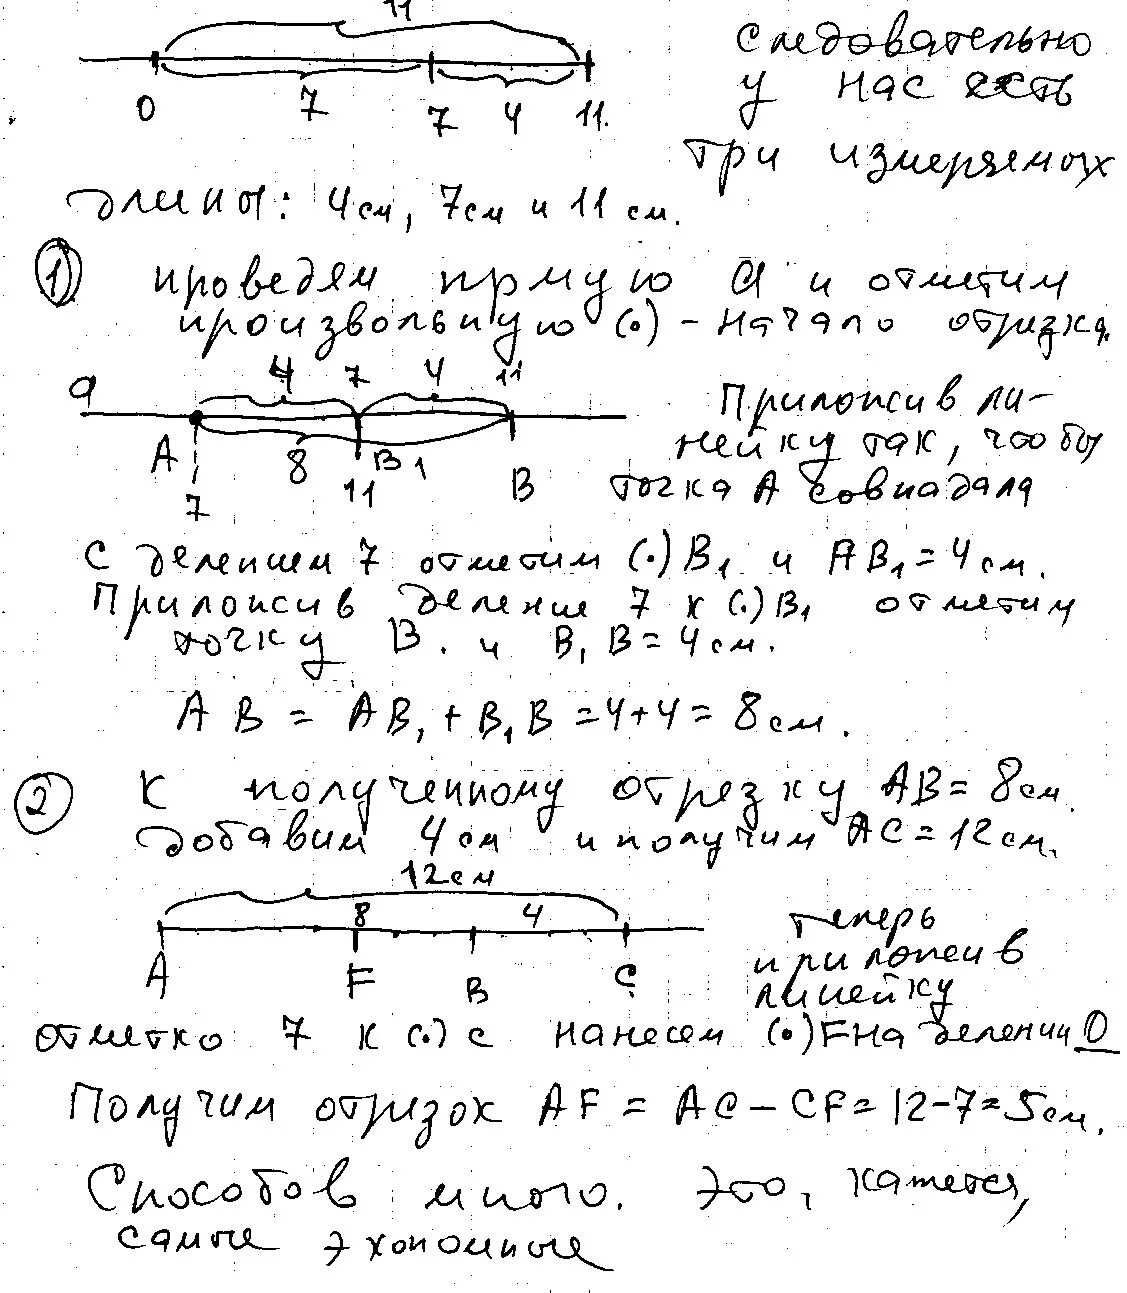 11
Следовательно
у нас есть
0 7 7 4 11.
три измеряемых
длины: 4см, 7см и 11 см.
1 проведям прмую a и отметим
произвольную (.) - начало отрезка.
a 4 7 4 11
Приложив ли-
A 8 B1 B
нейку так, чтобы
7 11
точка А совпадала
с делением 7 отметим (.) B1 и AB1 = 4 см.
Приложив деление 7 к (.) B1 отметим
точку B. и B1B = 4 см.
AB = AB1 + B1B = 4+4 = 8 см.
2 К полученному отрезку AB = 8 см.
добавим 4 см и получим AC = 12 см.
12 см
8 4
теперь
A F B C
приложив
линейку
отметко 7 к (.) C нанесем (.) F на делении 0
Получим отризок AF = AC - CF = 12-7 = 5 см.
Способов много. Это, кажется,
самые экономные